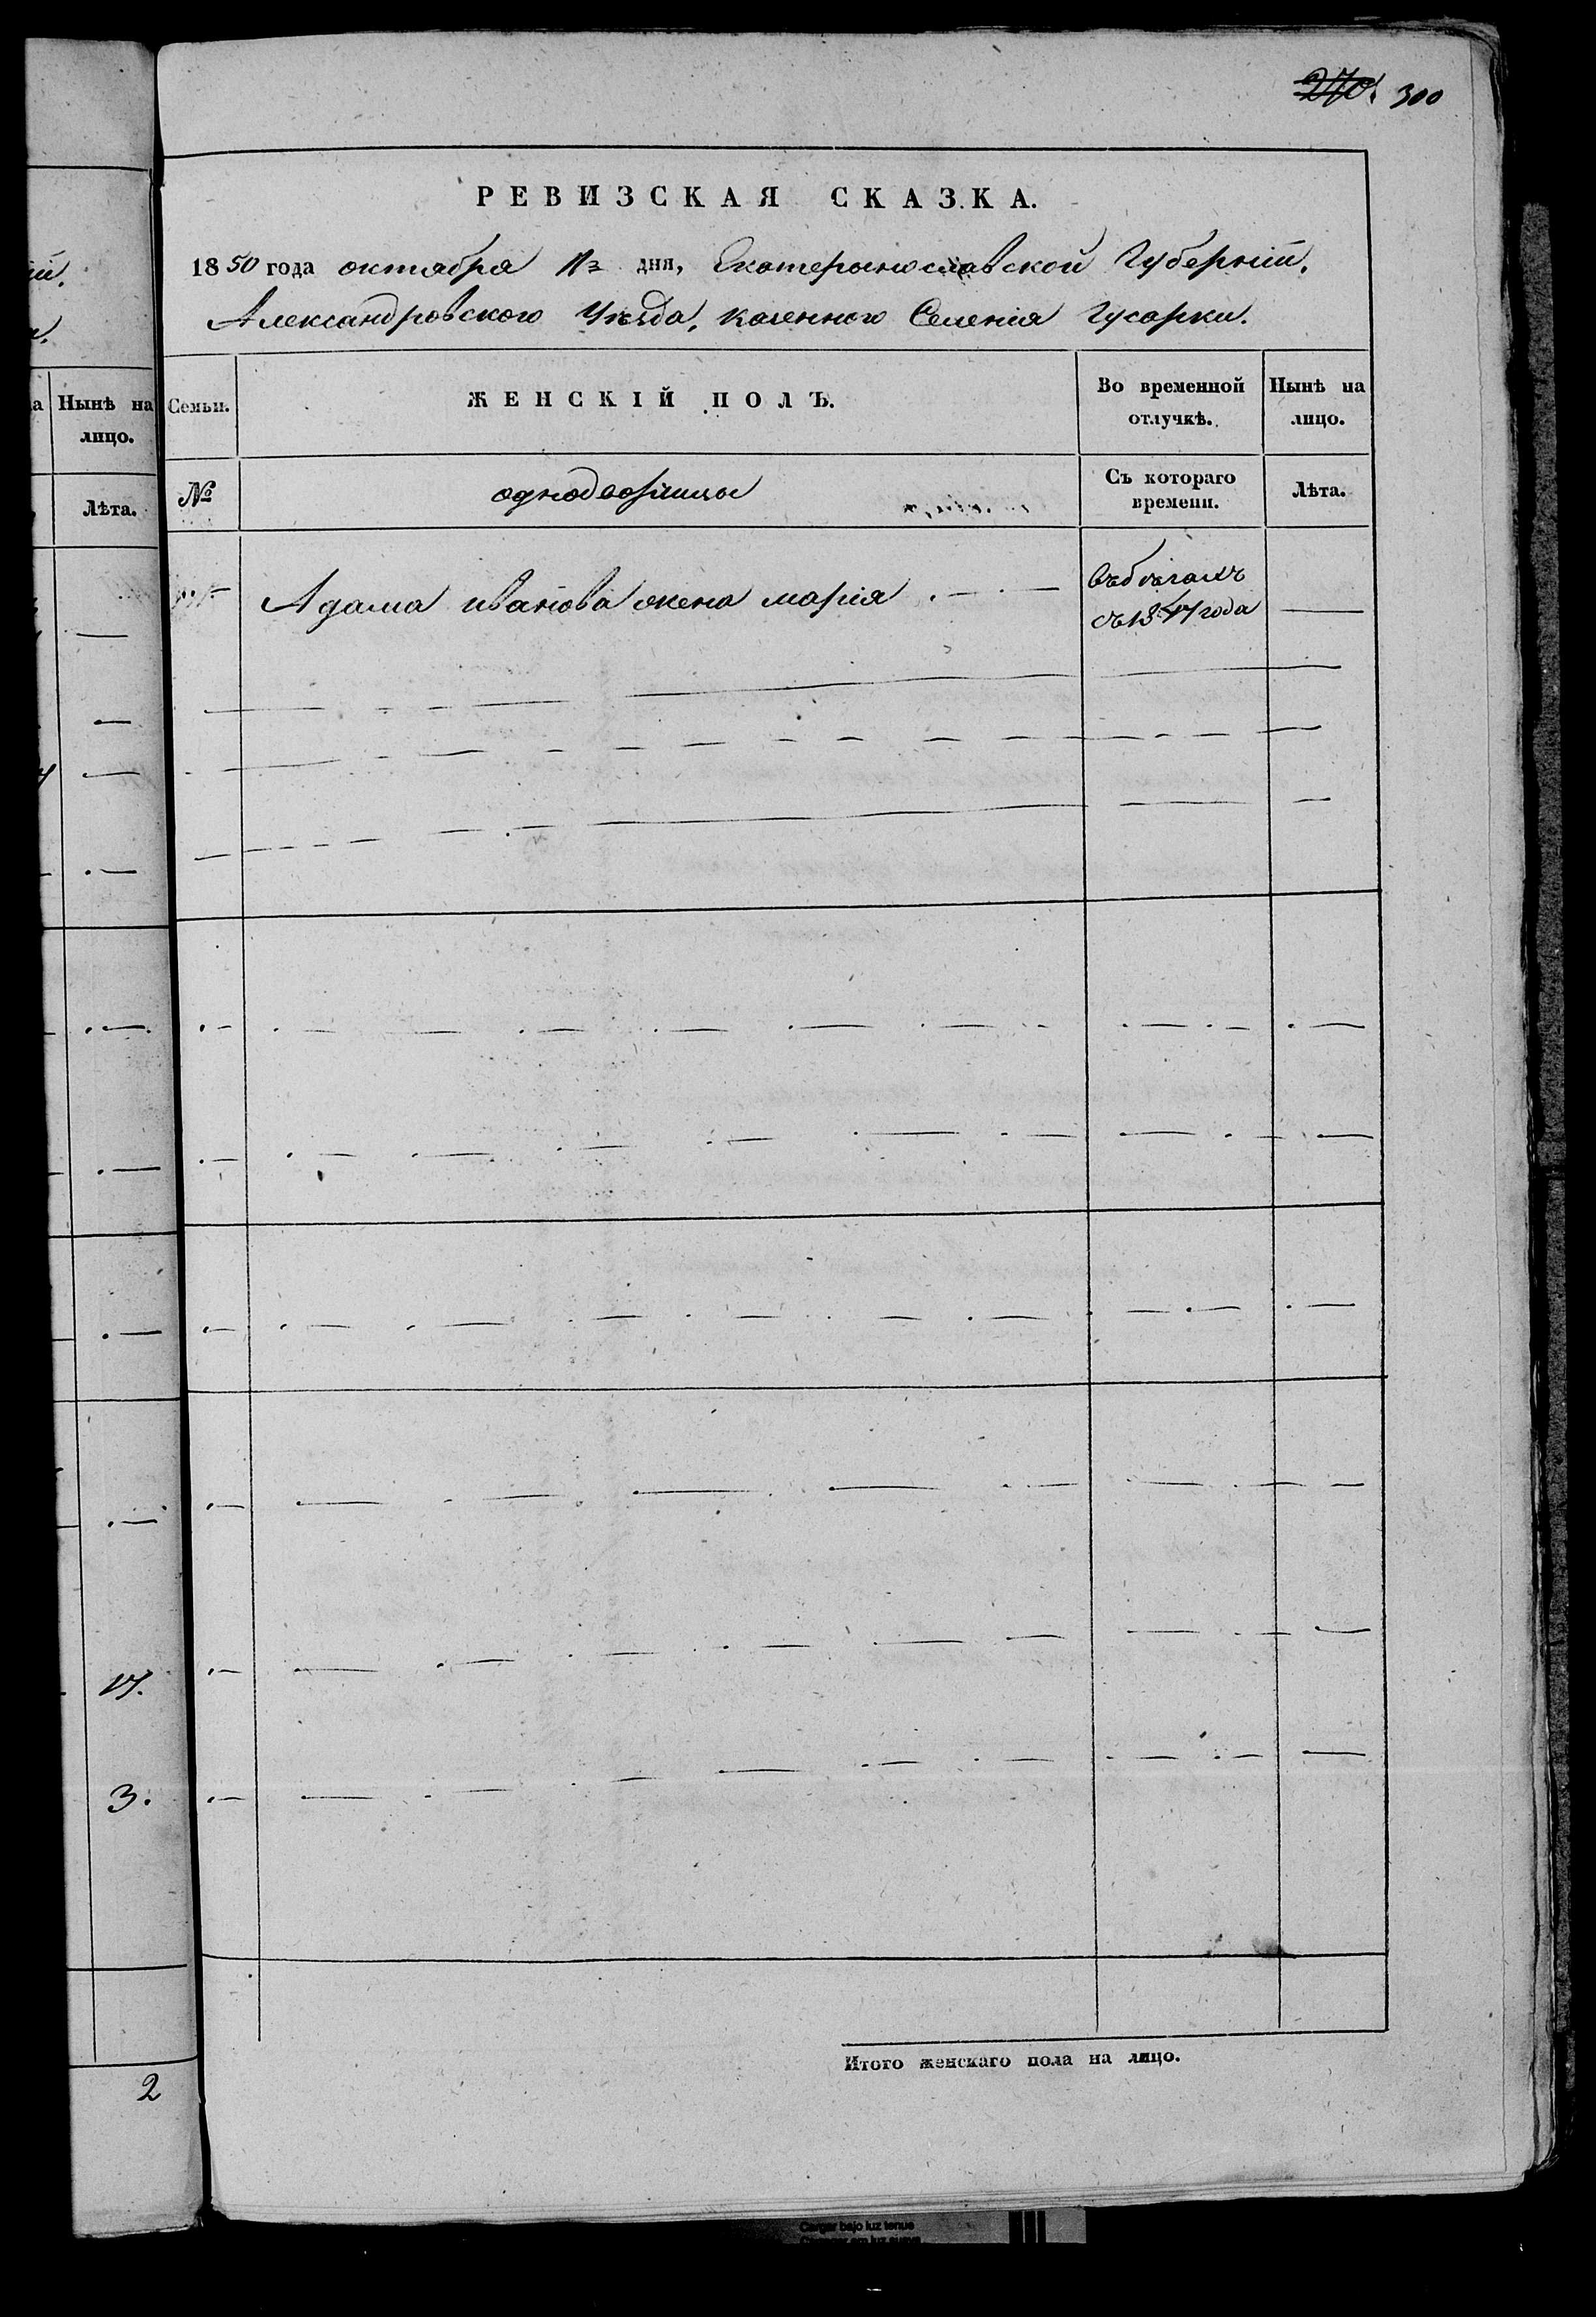 270. 300
РЕВИЗСКАЯ СКАЗКА.
1850 года октября дня, Екатеринославской Губерніи,
Александровского Уезда, казенного Селенія Гусарки.
Нынѣ на лицо.
Лѣта.
17.
3.
2
Семьи.
ЖЕНСКІЙ ПОЛЪ.
Во временной отлучкѣ.
Нынѣ на лицо.
№
однодворицы
Съ котораго времени.
Лѣта.
Адама иванова жена марія
въ бегахъ
съ 1847 года
Итого женскаго пола на лицо.
Cargar bajo luz tenue